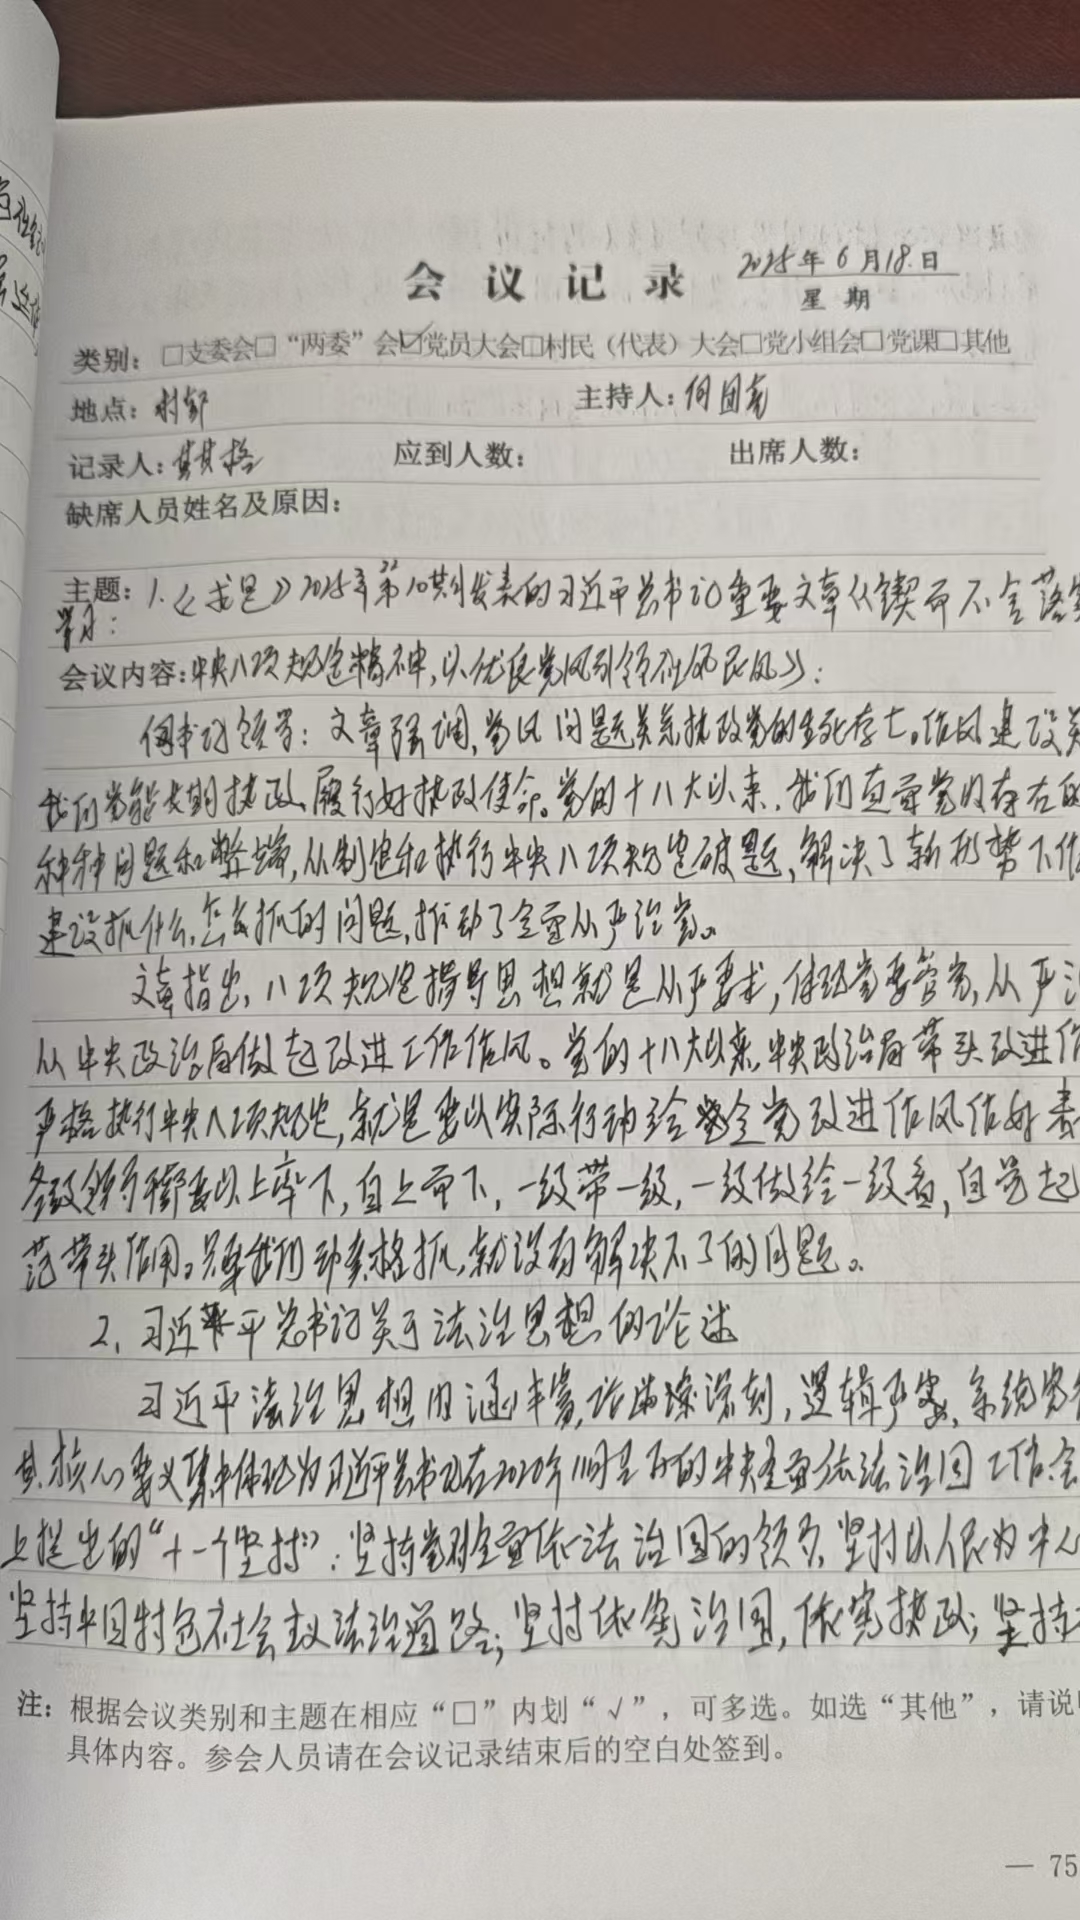 会议记录
2025年6月18日
星期
类别：□支委会□“两委”会☑党员大会□村民（代表）大会□党小组会□党课□其他
地点：村部 主持人：何
记录人： 应到人数： 出席人数：
缺席人员姓名及原因：
主题：1.《求是》2025年第10期发表的习近平总书记重要文章《锲而不舍落实
学习：
会议内容：中央八项规定精神，以优良党风引领社风民风》：
何书记领学：文章强调，党风问题关系执政党的生死存亡。作风建设关
我们党能长期执政、履行好执政使命。党的十八大以来，我们直面党内存在的
种种问题和弊端，从制定和执行中央八项规定破题，解决了新形势下作
建设抓什么、怎么抓的问题，推动了全面从严治党。
文章指出，八项规定指导思想就是从严要求，体现党要管党，从严治
从中央政治局做起改进工作作风。党的十八大以来，中央政治局带头改进作
严格执行中央八项规定，就是要以实际行动给全党改进作风作好表
各级领导干部要以上率下，自上而下，一级带一级，一级做给一级看，自觉起
范带头作用。只要我们动真格抓，就没有解决不了的问题。
2、习近平总书记关于法治思想的论述
习近平法治思想内涵丰富，论述深刻，逻辑严密，系统完备
其核心要义集中体现为习近平总书记在2020年11月召开的中央全面依法治国工作会
上提出的“十一个坚持”：坚持党对全面依法治国的领导，坚持以人民为中心
坚持中国特色社会主义法治道路；坚持依宪治国，依宪执政；坚持
注：根据会议类别和主题在相应“□”内划“√”，可多选。如选“其他”，请说
具体内容。参会人员请在会议记录结束后的空白处签到。
— 75